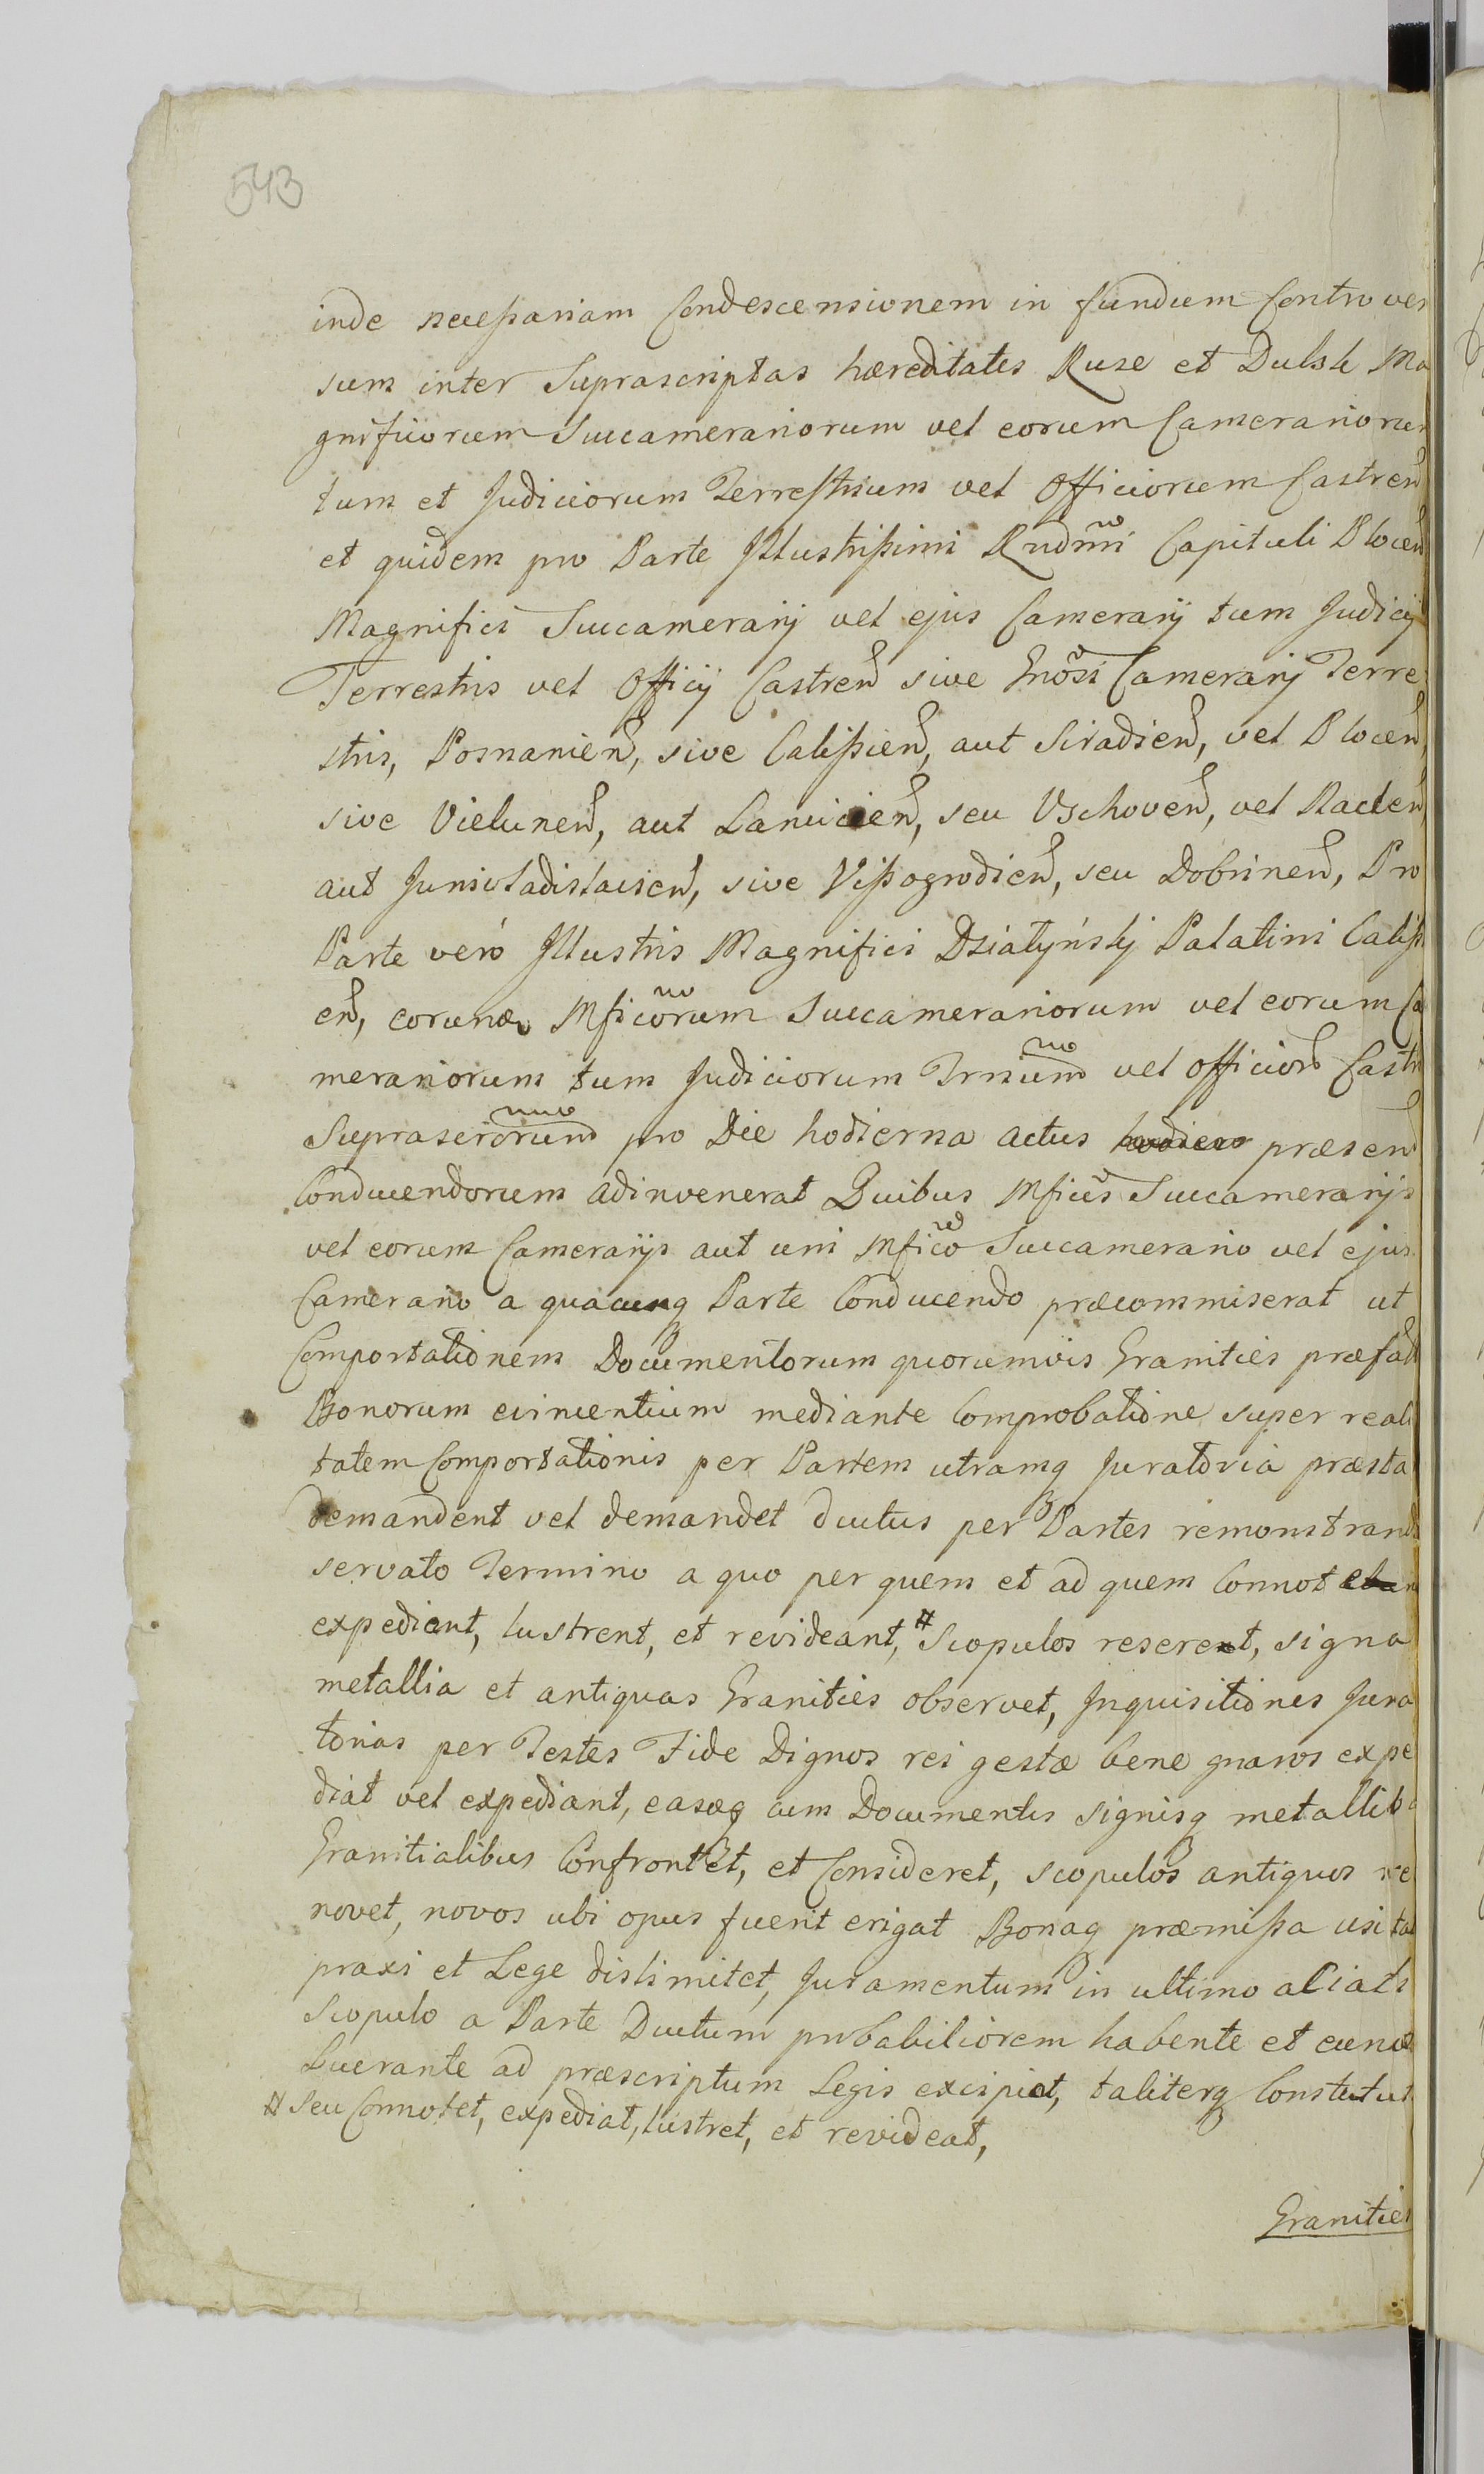 543
inde necessariam Condescensionem in fundum Controver
sum inter Suprascriptas hæreditates Ruse et Dulsk Ma
gnificorum Succamerariorum vel eorum Camerariorum
tum et Judiciorum Terrestrium vel Officiorum Castren
et quidem pro Parte Illustrissimi Rndmi Capituli Plocen
Magnifici Succamerarij vel ejus Camerarij tum Judicij
Terrestris vel Officij Castren sive Gnosi Camerarij Terre
stris, Posnanien, sive Calissien, aut Siradien, vel Plocen,
sive Vielunen, aut Lancicien, seu Vschoven, vel Naclen
aut Junivladislavien, sive Vissogrodien, seu Dobrinen, Pro
Parte verò Illustris Magnifici Działyńskj Palatini Caliss
en, eorundem Mficorum Succamerariorum vel eorum Ca
merariorum tum Judiciorum Trrium vel officior Castr
Suprascrorum pro Die hodierna actus præsen
Conducendorum adinvenerat Quibus Mficis Succamerarijs
vel eorum Camerarijs aut uni Mfico Succamerario vel ejus
Camerario a quacunq Parte Conducendo præcommiserat ut
Comportationem Documentorum quorumvis Granities præfat
Bonorum evincentium mediante Comprobatione super reali
tatem Comportationis per Partem utramq Juratoria præsta
demandent vel demandet ductus per Partes remonstrand
servato Termino a quo per quem et ad quem Connot
expediant, lustrent, et revideant, # Scopulos reserent, signa
metallia et antiquas Granities observet, Inquisitiones Jura
torias per Testes Fide Dignos rei gestæ bene gnaros expe
diat vel expediant, easq cum Documentis signisq metallib
Granitialibus Confrontet, et Consideret, scopulos antiquos re
novet, novos ubi opus fuerit erigat Bonaq præmissa usitat
praxi et Lege dislimitet, Juramentum in ultimo aciali
Scopulo a Parte Ductum probabiliorem habente et eund
Lucrante ad præscriptum Legis excipiat, taliterq Constitut
# seu Connotet, expediat, lustret, et revideat,
Granities